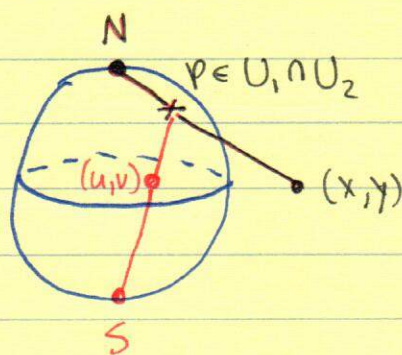 N
p ∈ U₁ ∩ U₂
(u,v)
(x,y)
S